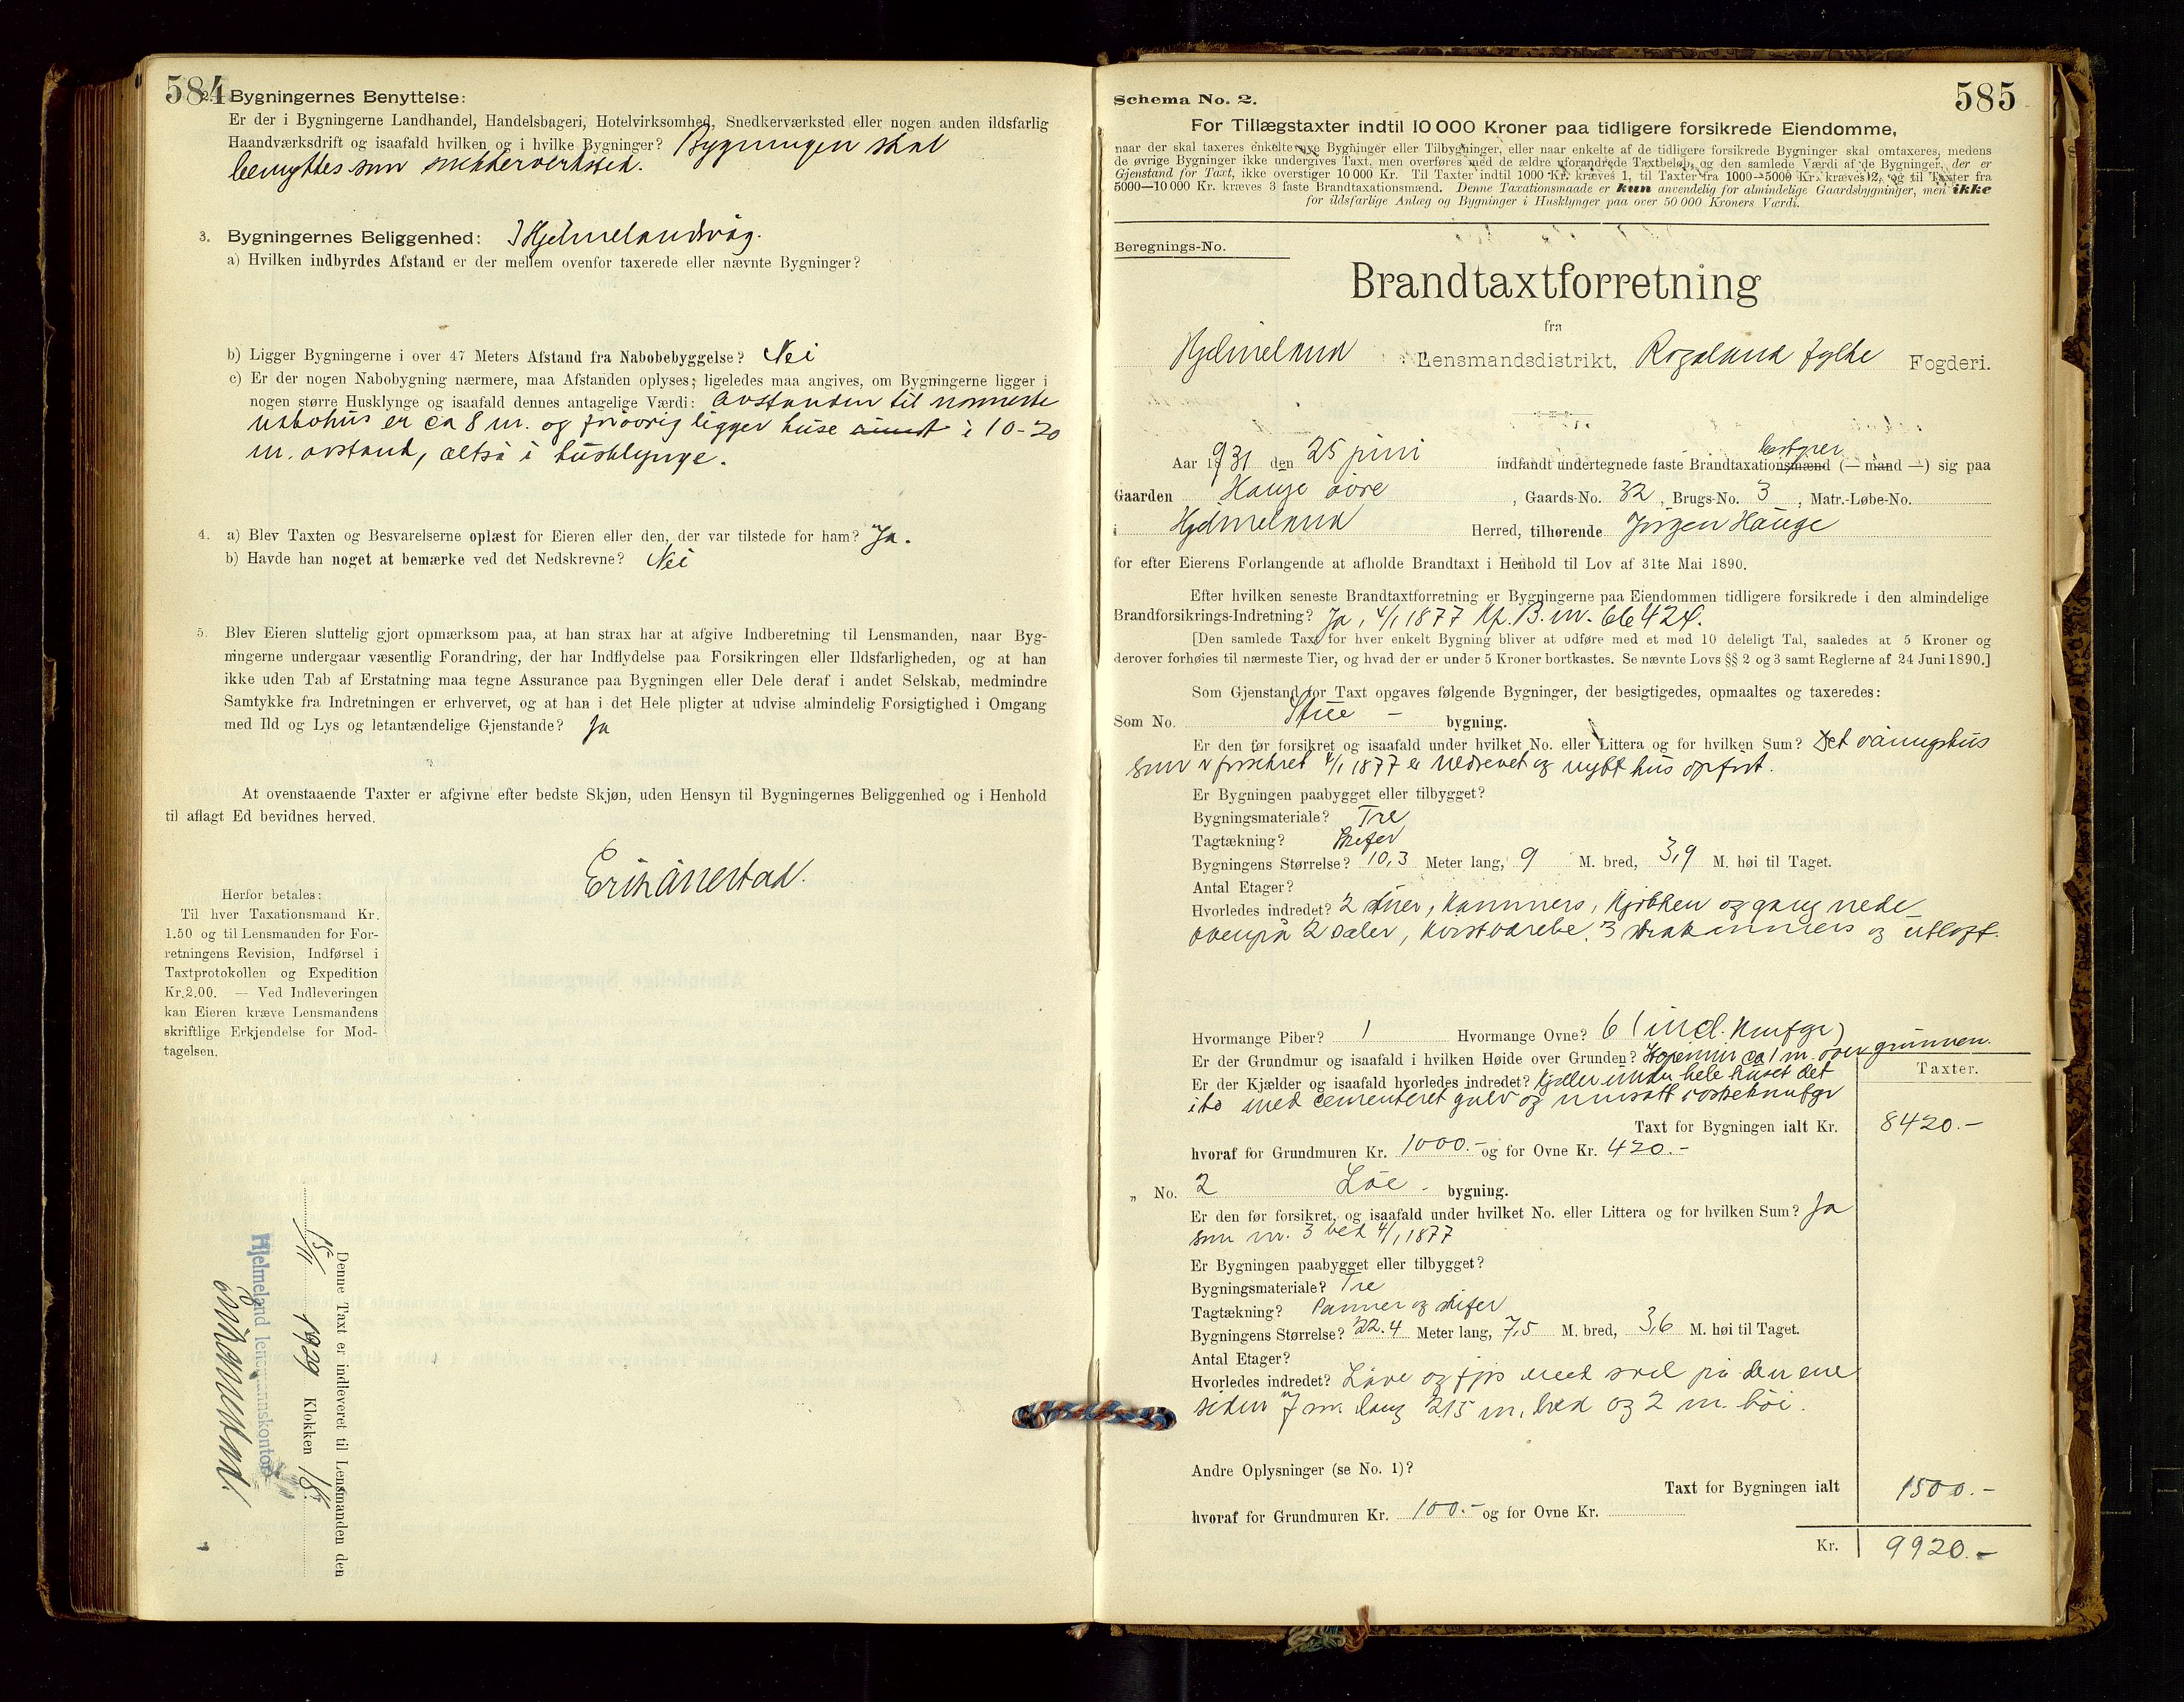 584
2. Bygningernes Benyttelse:
Er der i Bygningerne Landhandel, Handelsbageri, Hotelvirksomhed, Snedkerværksted eller nogen anden ildsfarlig
Haandværksdrift og isaafald hvilken og i hvilke Bygninger? Bygningen skal
benyttes som snekkerverksted.
3. Bygningernes Beliggenhed: I Hjelmelandsvåg.
a) Hvilken indbyrdes Afstand er der mellem ovenfor taxerede eller nævnte Bygninger?
b) Ligger Bygningerne i over 47 Meters Afstand fra Nabobebyggelse? Nei
c) Er der nogen Nabobygning nærmere, maa Afstanden oplyses; ligeledes maa angives, om Bygningerne ligger i
nogen større Husklynge og isaafald dennes antagelige Værdi: Avstanden til nærmeste
nabohus er ca 8 m. og forøvrig ligger huse i 10-20
m. avstand, altså i husklynge.
4. a) Blev Taxten og Besvarelserne oplæst for Eieren eller den, der var tilstede for ham? Ja.
b) Havde han noget at bemærke ved det Nedskrevne? Nei
5. Blev Eieren sluttelig gjort opmærksom paa, at han strax har at afgive Indberetning til Lensmanden, naar Byg-
ningerne undergaar væsentlig Forandring, der har Indflydelse paa Forsikringen eller Ildsfarligheden, og at han
ikke uden Tab af Erstatning maa tegne Assurance paa Bygningen eller Dele deraf i andet Selskab, medmindre
Samtykke fra Indretningen er erhvervet, og at han i det Hele pligter at udvise almindelig Forsigtighed i Omgang
med Ild og Lys og letantændelige Gjenstande? Ja
At ovenstaaende Taxter er afgivne efter bedste Skjøn, uden Hensyn til Bygningernes Beliggenhed og i Henhold
til aflagt Ed bevidnes herved.
Erik Ånestad.
Herfor betales:
Til hver Taxationsmand Kr.
1.50 og til Lensmanden for For-
retningens Revision, Indførsel i
Taxtprotokollen og Expedition
Kr. 2.00. — Ved Indleveringen
kan Eieren kræve Lensmandens
skriftlige Erkjendelse for Mod-
tagelsen.
Denne Taxt er indleveret til Lensmanden den
15/11 1929 Klokken 18.
Hjelmeland lensmannskontor
Erik Ånestad.
585
Schema No. 2.
For Tillægstaxter indtil 10 000 Kroner paa tidligere forsikrede Eiendomme,
naar der skal taxeres enkelte nye Bygninger eller Tilbygninger, eller naar enkelte af de tidligere forsikrede Bygninger skal omtaxeres, medens
de øvrige Bygninger ikke undergives Taxt, men overføres med de ældre uforandrede Taxtbeløb, og den samlede Værdi af de Bygninger, der er
Gjenstand for Taxt, ikke overstiger 10 000 Kr. Til Taxter indtil 1000 Kr. kræves 1, til Taxter fra 1000—5000 Kr. kræves 2, og til Taxter fra
5000—10 000 Kr. kræves 3 faste Brandtaxationsmænd. Denne Taxationsmaade er kun anvendelig for almindelige Gaardsbygninger, men ikke
for ildsfarlige Anlæg og Bygninger i Husklynger paa over 50 000 Kroners Værdi.
Beregnings-No.
Brandtaxtforretning
fra
Hjelmeland Lensmandsdistrikt, Rogaland fylke Fogderi.
Aar 1931 den 25 juni indfandt undertegnede faste Brandtaxationsmænd (— mand —) sig paa
Gaarden Hauge øvre, Gaards-No. 32, Brugs-No. 3, Matr.-Løbe-No.
i Hjelmeland Herred, tilhørende Jörgen Hauge
for efter Eierens Forlangende at afholde Brandtaxt i Henhold til Lov af 31te Mai 1890.
Efter hvilken seneste Brandtaxtforretning er Bygningerne paa Eiendommen tidligere forsikrede i den almindelige
Brandforsikrings-Indretning? Ja, 4/1 1877 Kp. B. nr. 66424.
[Den samlede Taxt for hver enkelt Bygning bliver at udføre med et med 10 deleligt Tal, saaledes at 5 Kroner og
derover forhøies til nærmeste Tier, og hvad der er under 5 Kroner bortkastes. Se nævnte Lovs §§ 2 og 3 samt Reglerne af 24 Juni 1890.]
Som Gjenstand for Taxt opgaves følgende Bygninger, der besigtigedes, opmaaltes og taxeredes:
Som No. Stue - bygning.
Er den før forsikret og isaafald under hvilket No. eller Littera og for hvilken Sum? Det våningshus
som er forsikret 4/1 1877 er nedrevet og nytt hus opført.
Er Bygningen paabygget eller tilbygget?
Bygningsmateriale? Tre
Tagtækning? Skifer
Bygningens Størrelse? 10,3 Meter lang, 9 M. bred, 3,9 M. høi til Taget.
Antal Etager?
Hvorledes indredet? 2 stuer, kammers, kjøkken og gang nede
ovenpå 2 saler, 3 og utloft.
Hvormange Piber? 1 Hvormange Ovne? 6 (incl. komfyr)
Er der Grundmur og isaafald i hvilken Høide over Grunden? ca 1 m. over grunnen.
Er der Kjælder og isaafald hvorledes indredet? Kjeller under hele huset det
med cementeret gulv og
Taxter.
Taxt for Bygningen ialt Kr. 8420.-
hvoraf for Grundmuren Kr. 1000.- og for Ovne Kr. 420.-
„ No. 2 Löe - bygning.
Er den før forsikret, og isaafald under hvilket No. eller Littera og for hvilken Sum? Ja
som nr. 3 ved 4/1 1877
Er Bygningen paabygget eller tilbygget?
Bygningsmateriale? Tre
Tagtækning? Panner og skifer
Bygningens Størrelse? 22.4 Meter lang, 7,5 M. bred, 3,6 M. høi til Taget.
Antal Etager?
Hvorledes indredet? Låve og fjøs med sval på den ene
siden 7 m. lang 2,5 m. bred og 2 m. höi.
Andre Oplysninger (se No. 1)?
Taxt for Bygningen ialt 1500.-
hvoraf for Grundmuren Kr. 100.- og for Ovne Kr.
Kr. 9920.-